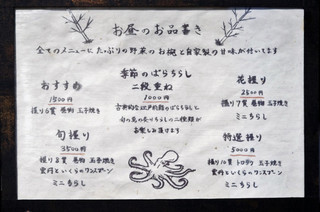 お昼のお品書き
全てのメニューに たっぷりの野菜のお椀と自家製の甘味が付いてます
おすすめ
1500円
握り6貫 巻物 玉子焼き
ミニちらし
季節のばらちらし
二段重ね
1000円
お楽しみ頂けます
花握り
2500円
握り7貫 巻物 玉子焼き
ミニちらし
旬握り
3500円
握り8貫 巻物 玉子焼き
雲丹といくらのワンスプーン
ミニちらし
特選握り
5000円
握り10貫 トロタク 玉子焼き
雲丹といくらのワンスプーン
ミニちらし